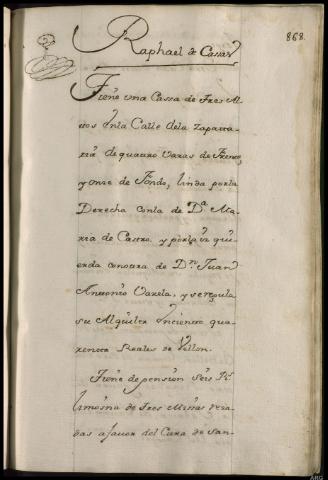 868.
Raphael de Casas
Tiene una Cassa de Tres Al-
tos En la Calle de la Zapate-
ria de quatro Varas de Frente,
y onse de Fondo, linda por la
Derecha con la de D.ª Ma-
ria de Castro, y por la iz qui-
erda con otra de D.n Juan
Antonio Varela, y se regula
su Alquiler En ciento qua-
renta Reales de Vellon.
Tiene de pension Seis R.s
limosna de Tres Missas reza-
das a favor del Cura de San-